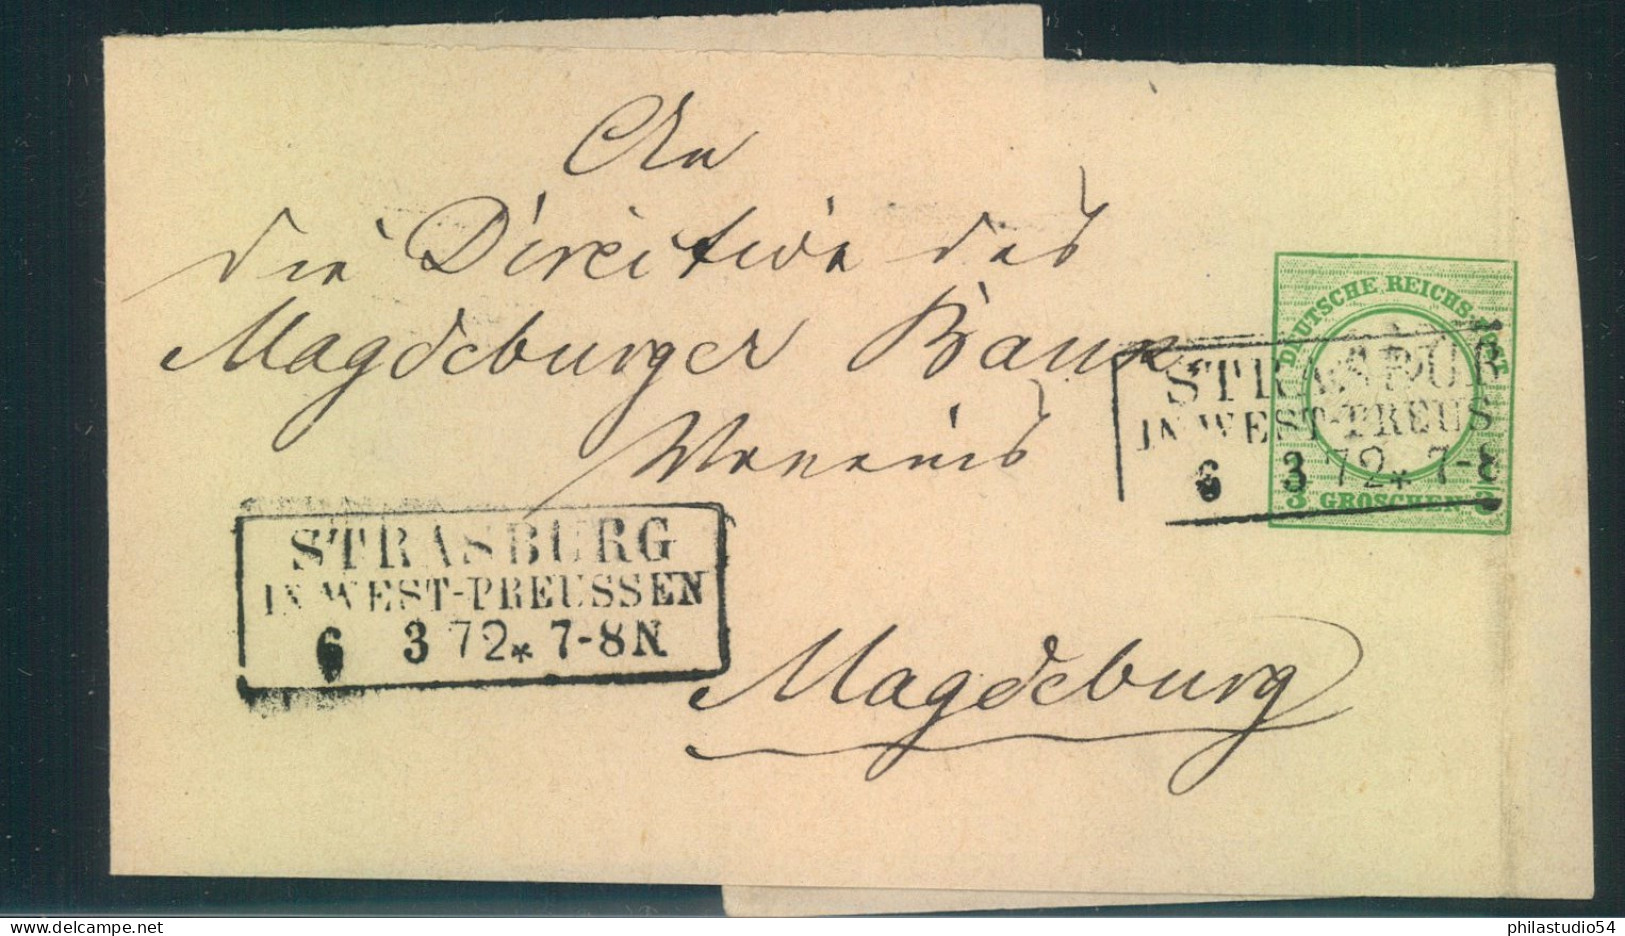 An
die Direction des
Magdeburger Bank
Vereins
Magdeburg
STRASBURG
IN WEST-PREUSSEN
6 3 72 * 7-8N
DEUTSCHE REICHS-POST
STRASBUR
IN WEST-PREUS
6 3 72 * 7-8
GROSCHEN
philastudio54